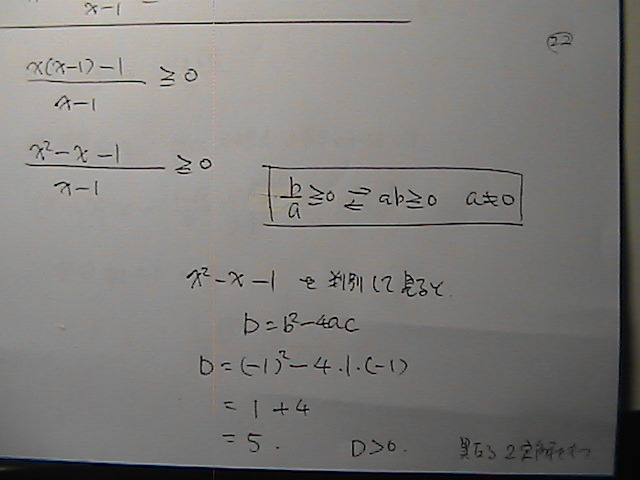 x-1
22
x(x-1)-1 / x-1 ≧ 0
x²-x-1 / x-1 ≧ 0
b/a ≧0 ⇄ ab≧0 a≠0
x²-x-1 を判別して見ると
D=b²-4ac
D=(-1)²-4・1・(-1)
= 1+4
= 5. D>0. 異なる2実解をもつ